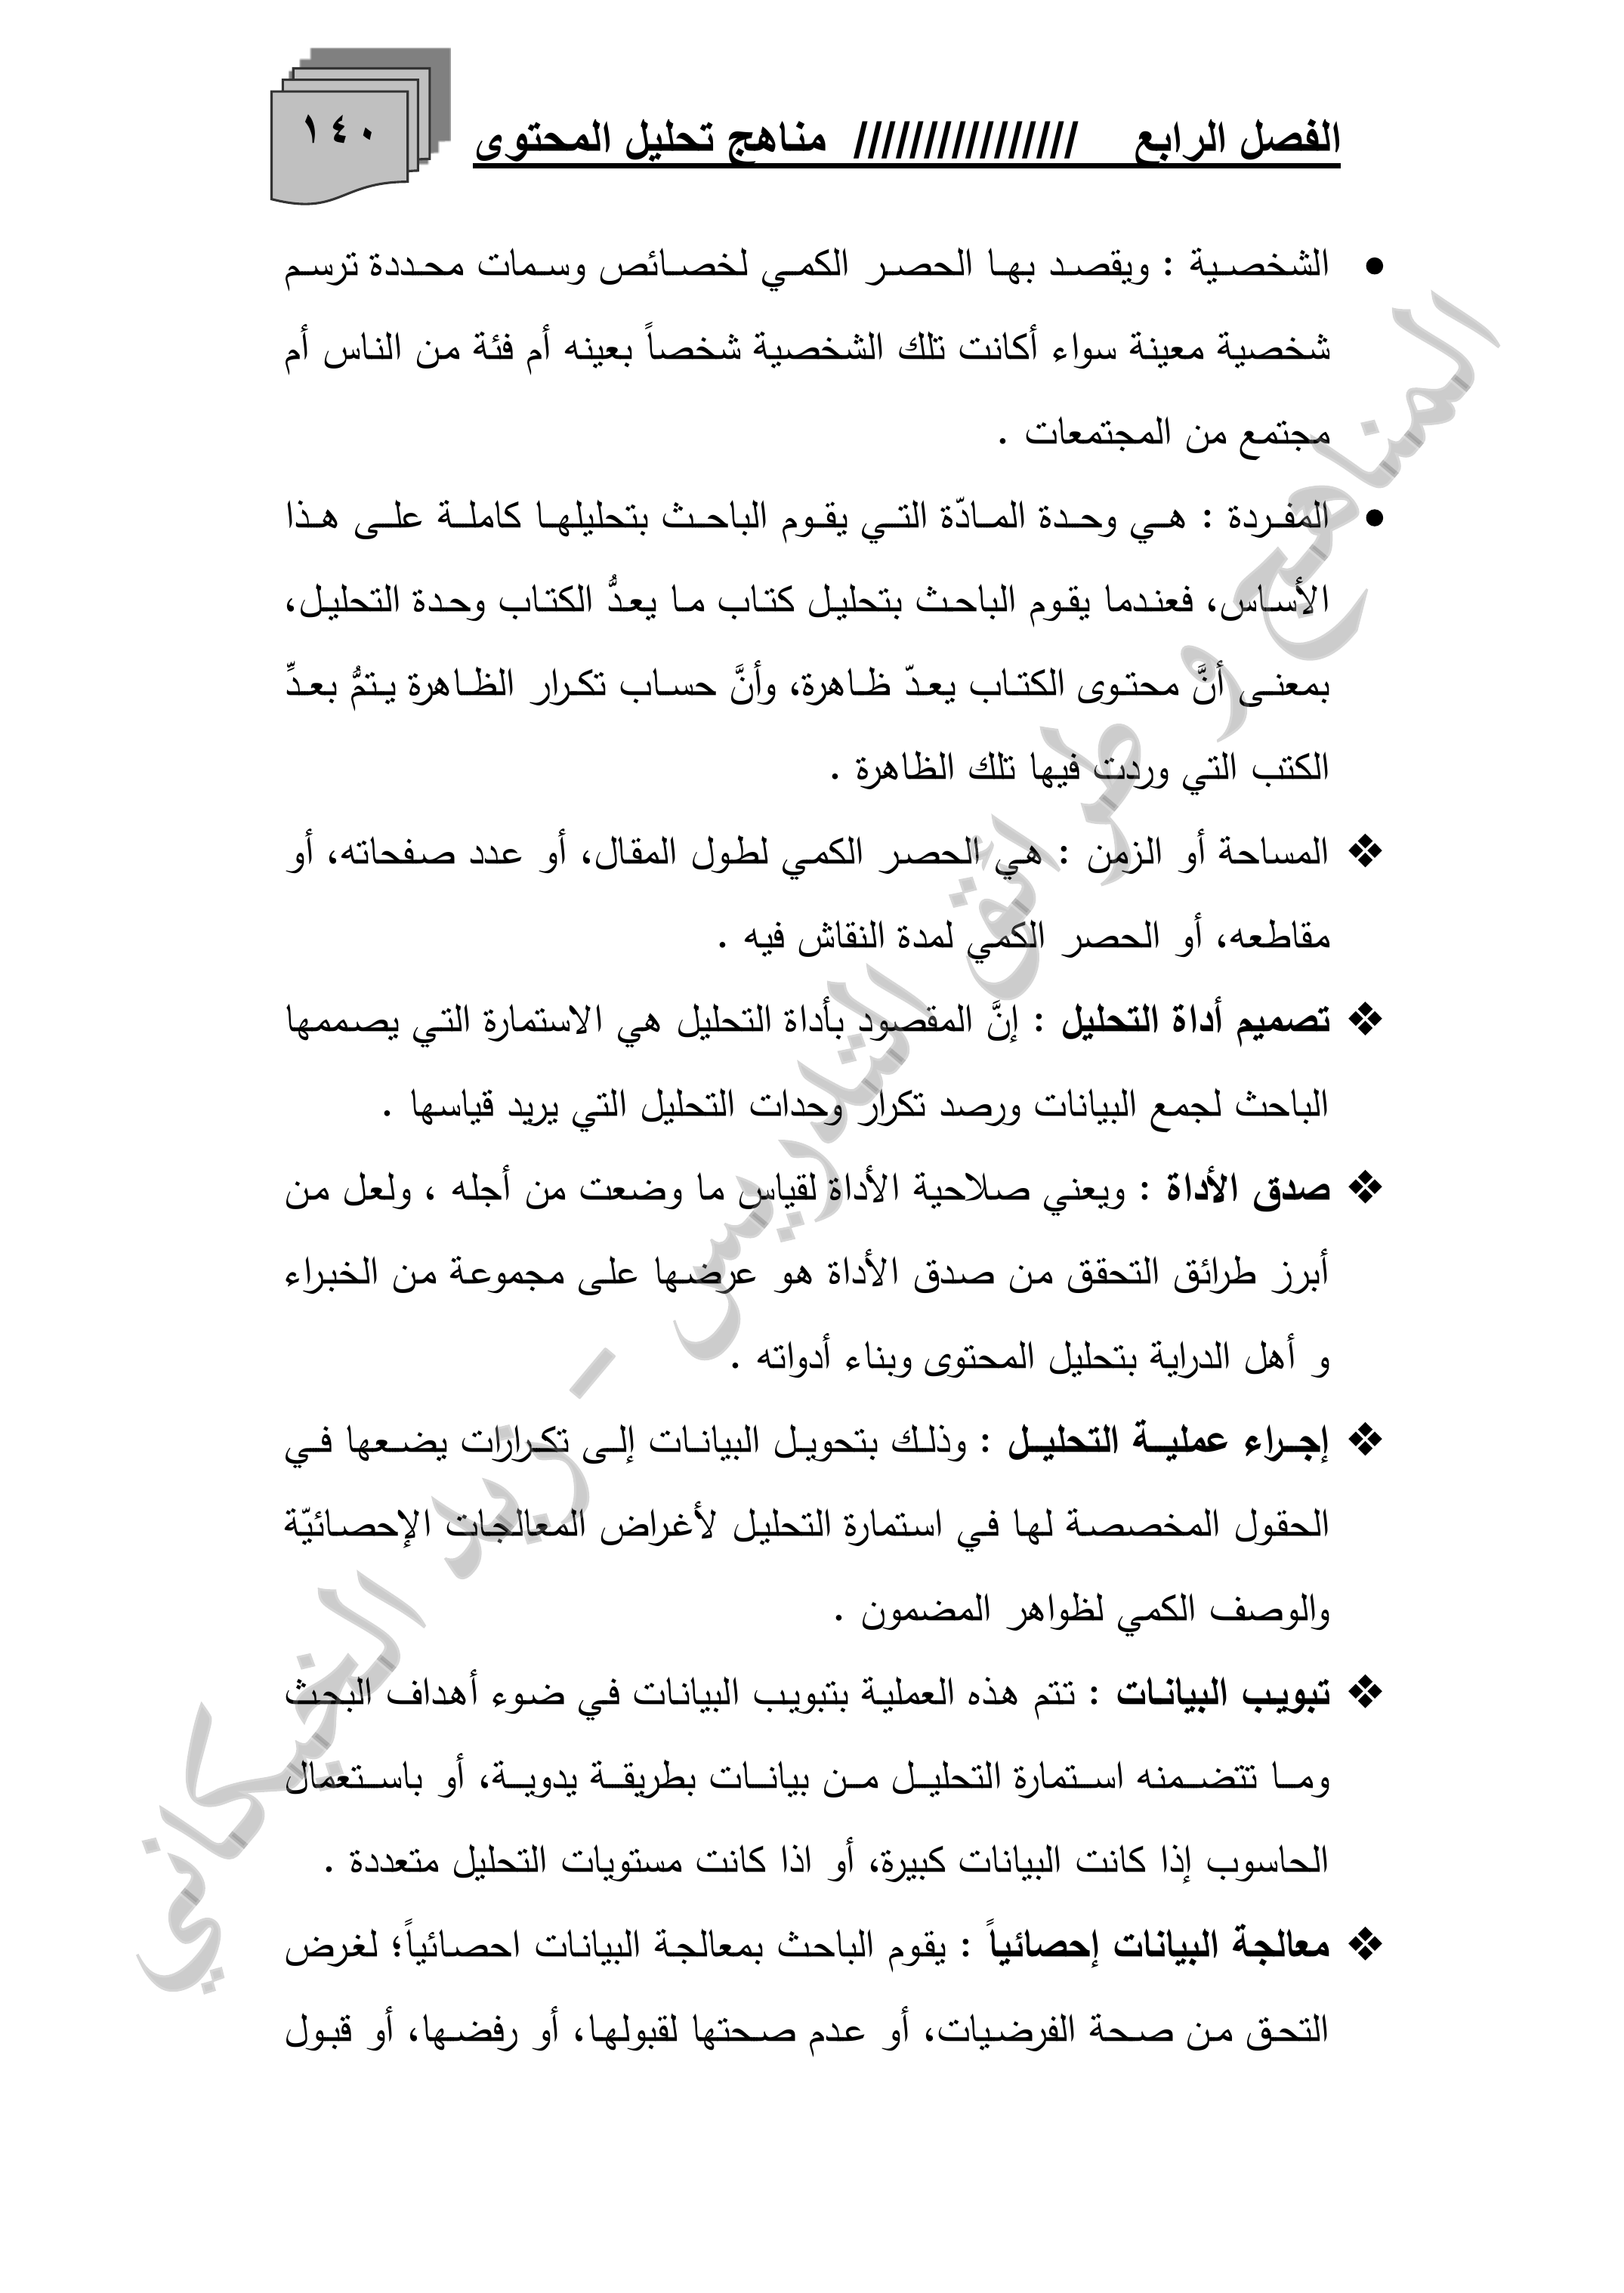 الفصل الرابع //////////////// مناهج تحليل المحتوى
١٤٠
• الشخصية : ويقصد بها الحصر الكمي لخصائص وسمات محددة ترسم
شخصية معينة سواء أكانت تلك الشخصية شخصاً بعينه أم فئة من الناس أم
مجتمع من المجتمعات .
• المفردة : هي وحدة المادّة التي يقوم الباحث بتحليلها كاملة على هذا
الأساس، فعندما يقوم الباحث بتحليل كتاب ما يعدُّ الكتاب وحدة التحليل،
بمعنى أنَّ محتوى الكتاب يعدّ ظاهرة، وأنَّ حساب تكرار الظاهرة يتمُّ بعدِّ
الكتب التي وردت فيها تلك الظاهرة .
❖ المساحة أو الزمن : هي الحصر الكمي لطول المقال، أو عدد صفحاته، أو
مقاطعه، أو الحصر الكمي لمدة النقاش فيه .
❖ تصميم أداة التحليل : إنَّ المقصود بأداة التحليل هي الاستمارة التي يصممها
الباحث لجمع البيانات ورصد تكرار وحدات التحليل التي يريد قياسها .
❖ صدق الأداة : ويعني صلاحية الأداة لقياس ما وضعت من أجله ، ولعل من
أبرز طرائق التحقق من صدق الأداة هو عرضها على مجموعة من الخبراء
و أهل الدراية بتحليل المحتوى وبناء أدواته .
❖ إجراء عملية التحليل : وذلك بتحويل البيانات إلى تكرارات يضعها في
الحقول المخصصة لها في استمارة التحليل لأغراض المعالجات الإحصائيّة
والوصف الكمي لظواهر المضمون .
❖ تبويب البيانات : تتم هذه العملية بتبويب البيانات في ضوء أهداف البحث
وما تتضمنه استمارة التحليل من بيانات بطريقة يدوية، أو باستعمال
الحاسوب إذا كانت البيانات كبيرة، أو اذا كانت مستويات التحليل متعددة .
❖ معالجة البيانات إحصائياً : يقوم الباحث بمعالجة البيانات احصائياً؛ لغرض
التحق من صحة الفرضيات، أو عدم صحتها لقبولها، أو رفضها، أو قبول
المناهج و طرائق التدريس - زيد الخيكاني